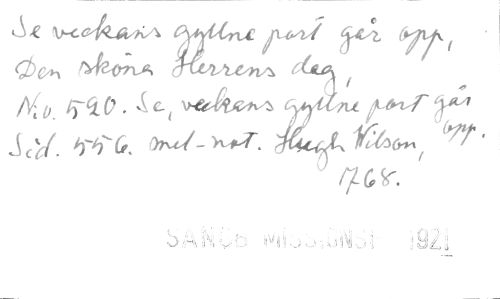 Se veckans gyllne port går opp,
Den sköna Herrens dag,
No. 520. Se, veckans gyllne port går opp.
Sid. 556. mel-not. Hugh Wilson,
1768.
1921